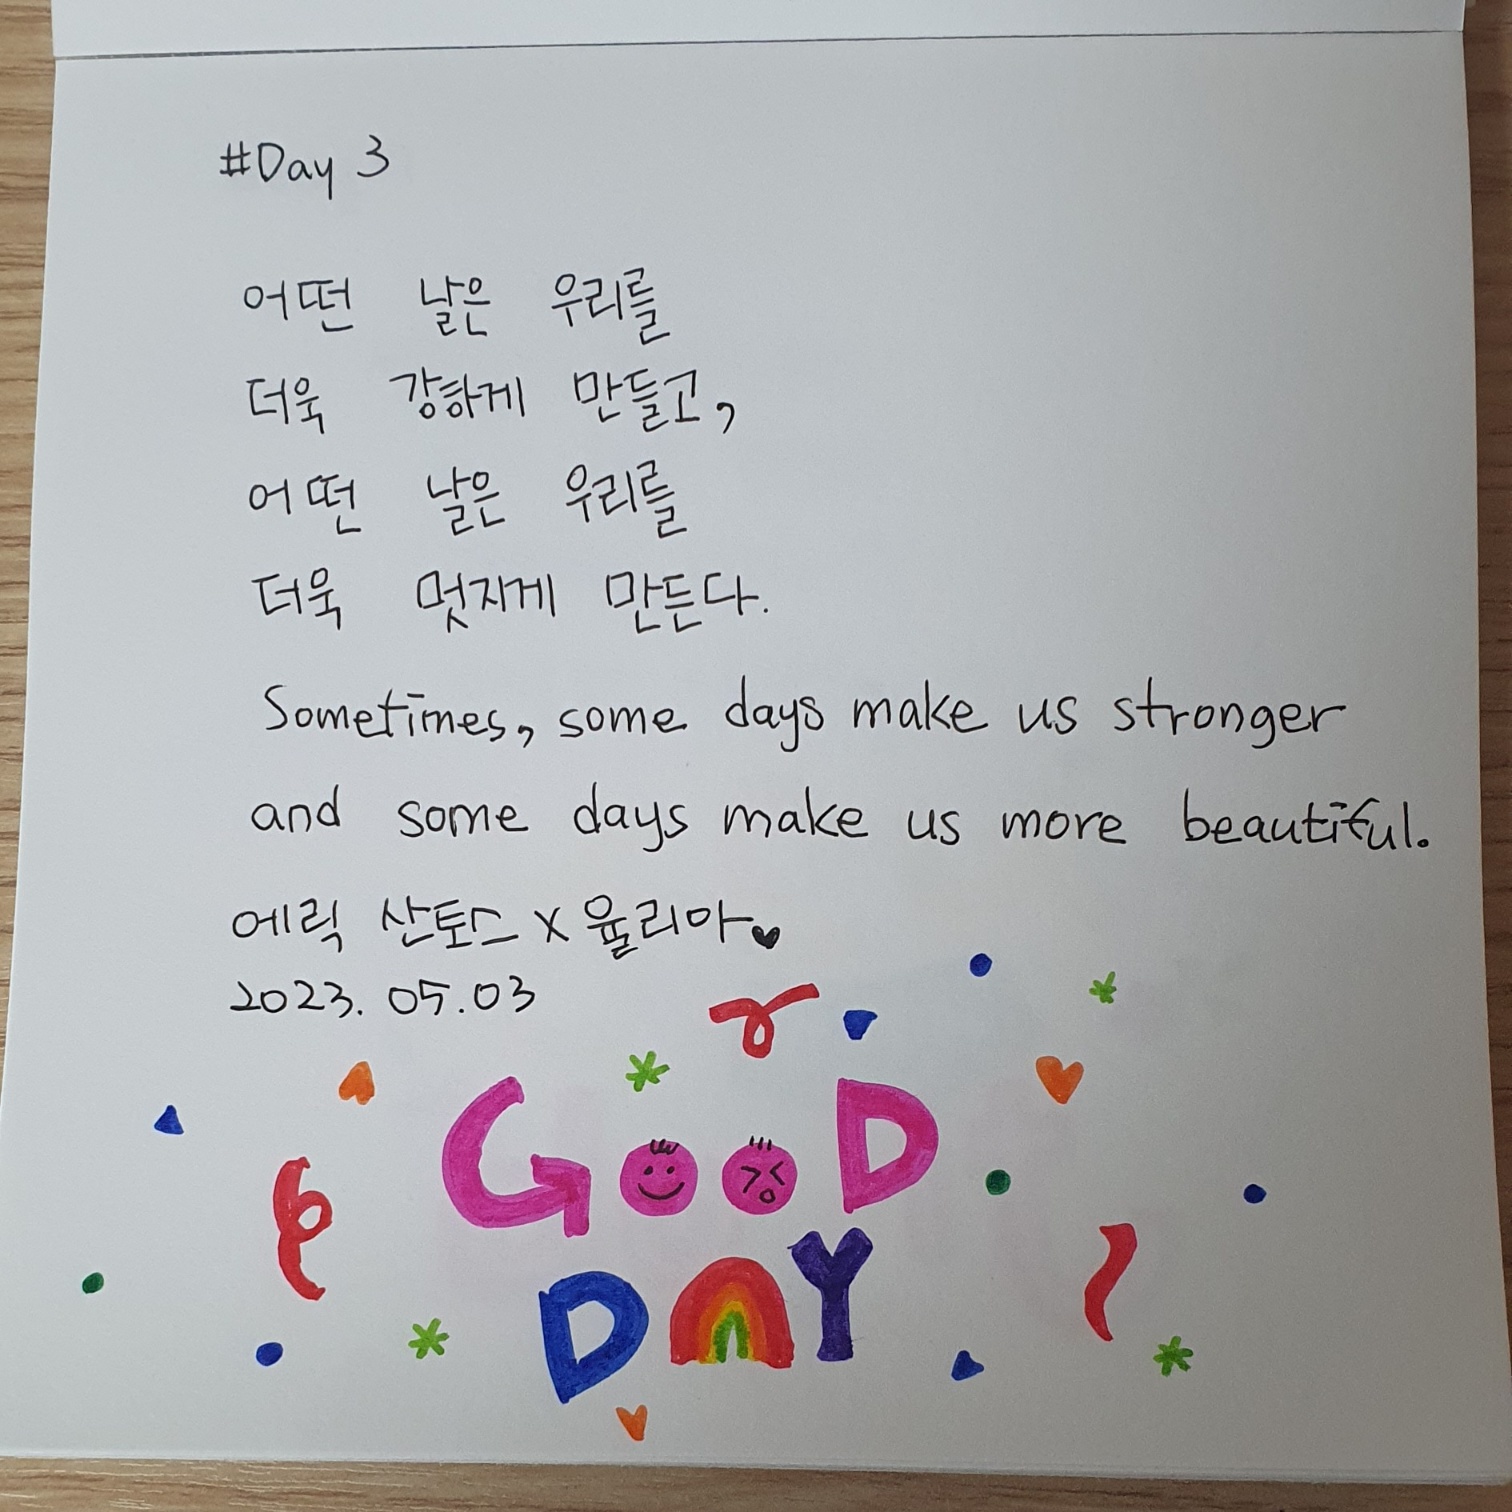 #Day 3
어떤 날은 우리를
더욱 강하게 만들고,
어떤 날은 우리를
더욱 멋지게 만든다.
Sometimes, some days make us stronger
and some days make us more beautiful.
에릭 산토스 x 율리아♥
2023. 05.03
GOOD
DAY